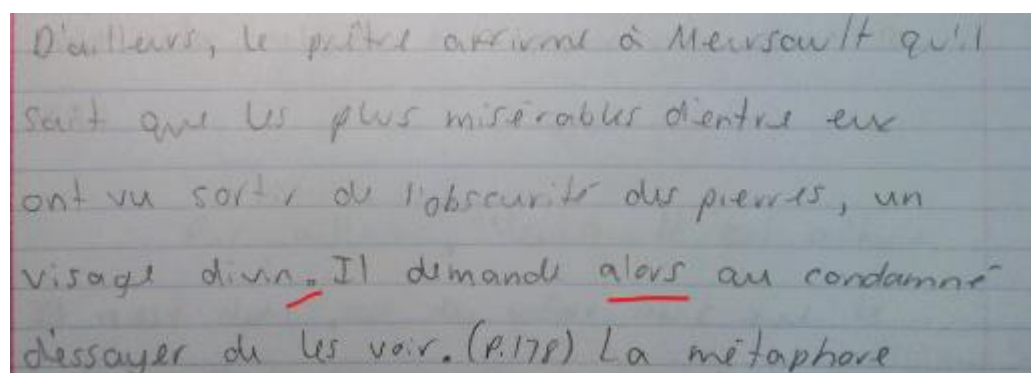 D'ailleurs, le prêtre affirme à Meursault qu'il
sait que les plus misérables d'entre eux
ont vu sortir de l'obscurité des pierres, un
visage divin. Il demande alors au condamné
d'essayer de les voir. (P.178) La métaphore